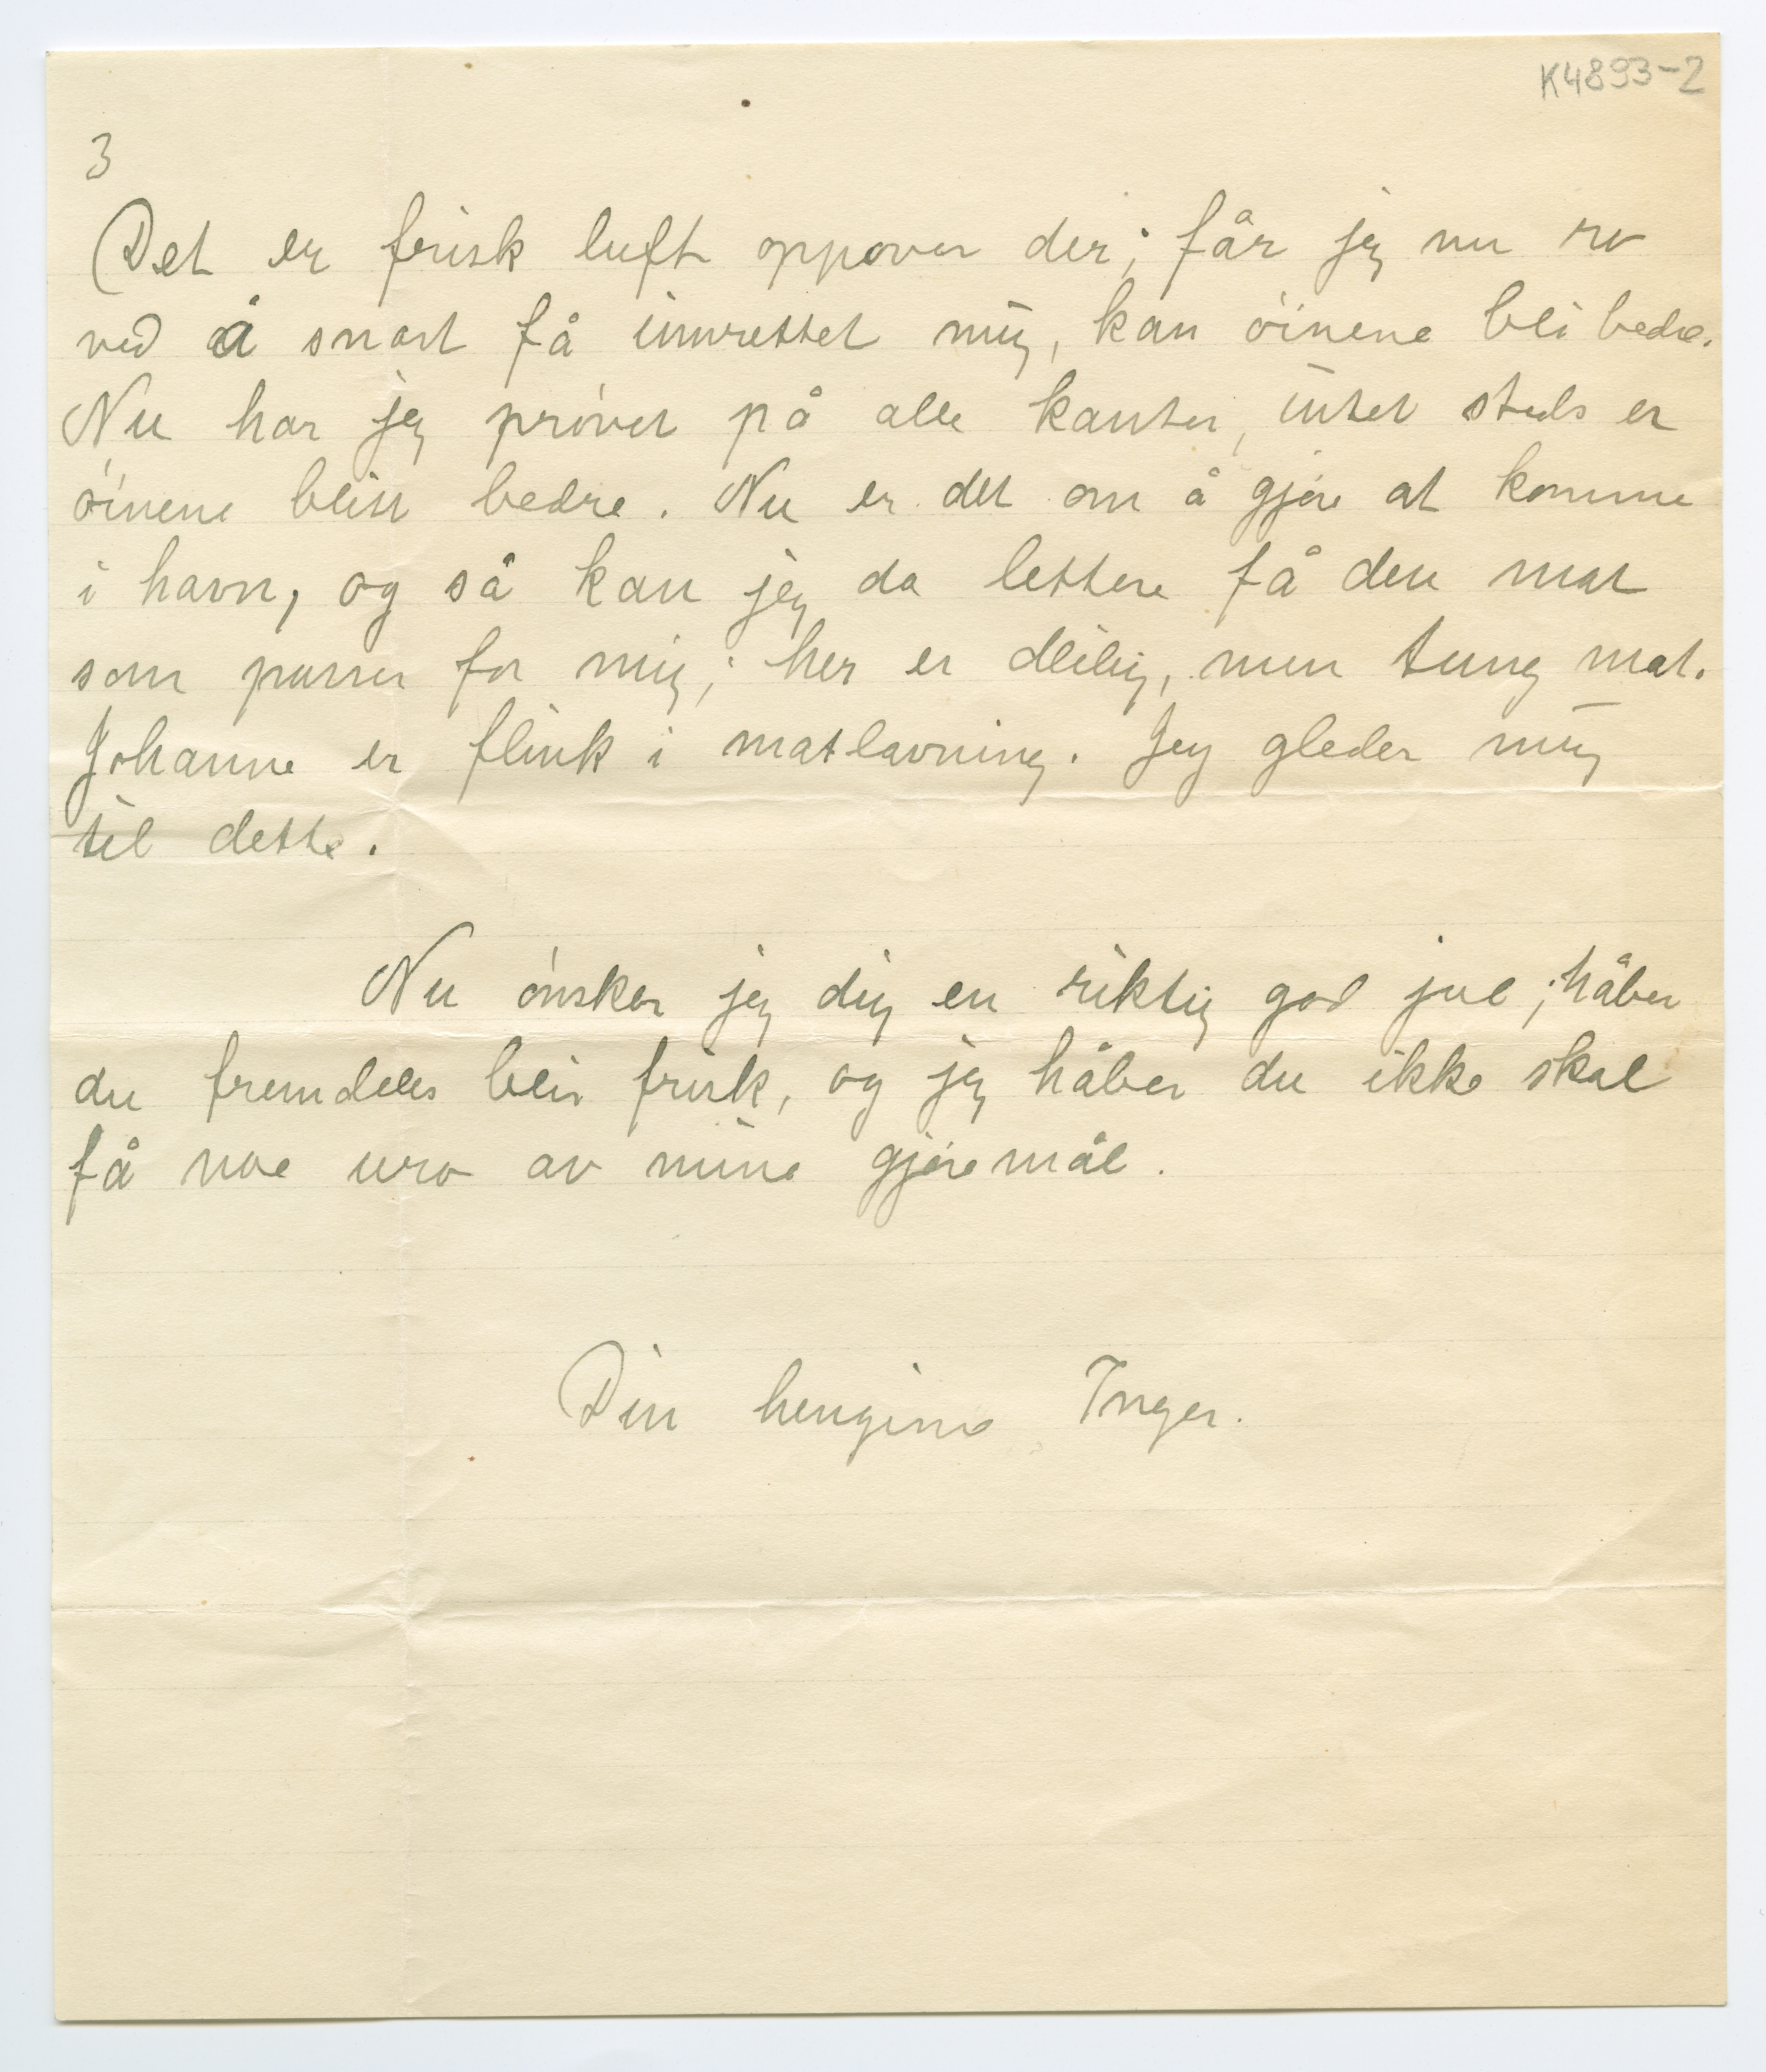 K4893-2
3
Det er frisk luft oppover der; får jeg nu ro
ved å snart få innrettet mig, kan øinene bli bedre.
Nu har jeg prøvet på alle kanter, intet steds er
øinene blitt bedre. Nu er det om å gjøre at komme
i havn, og så kan jeg da lettere få den mat
som passer for mig; her er deilig, men tung mat.
Johanne er flink i matlavning. Jeg gleder mig
til dette.
Nu ønsker jeg dig en riktig god jul; håber
du fremdeles blir frisk, og jeg håber du ikke skal
få noe uro av mine gjøremål.
Din hengivne Inger.